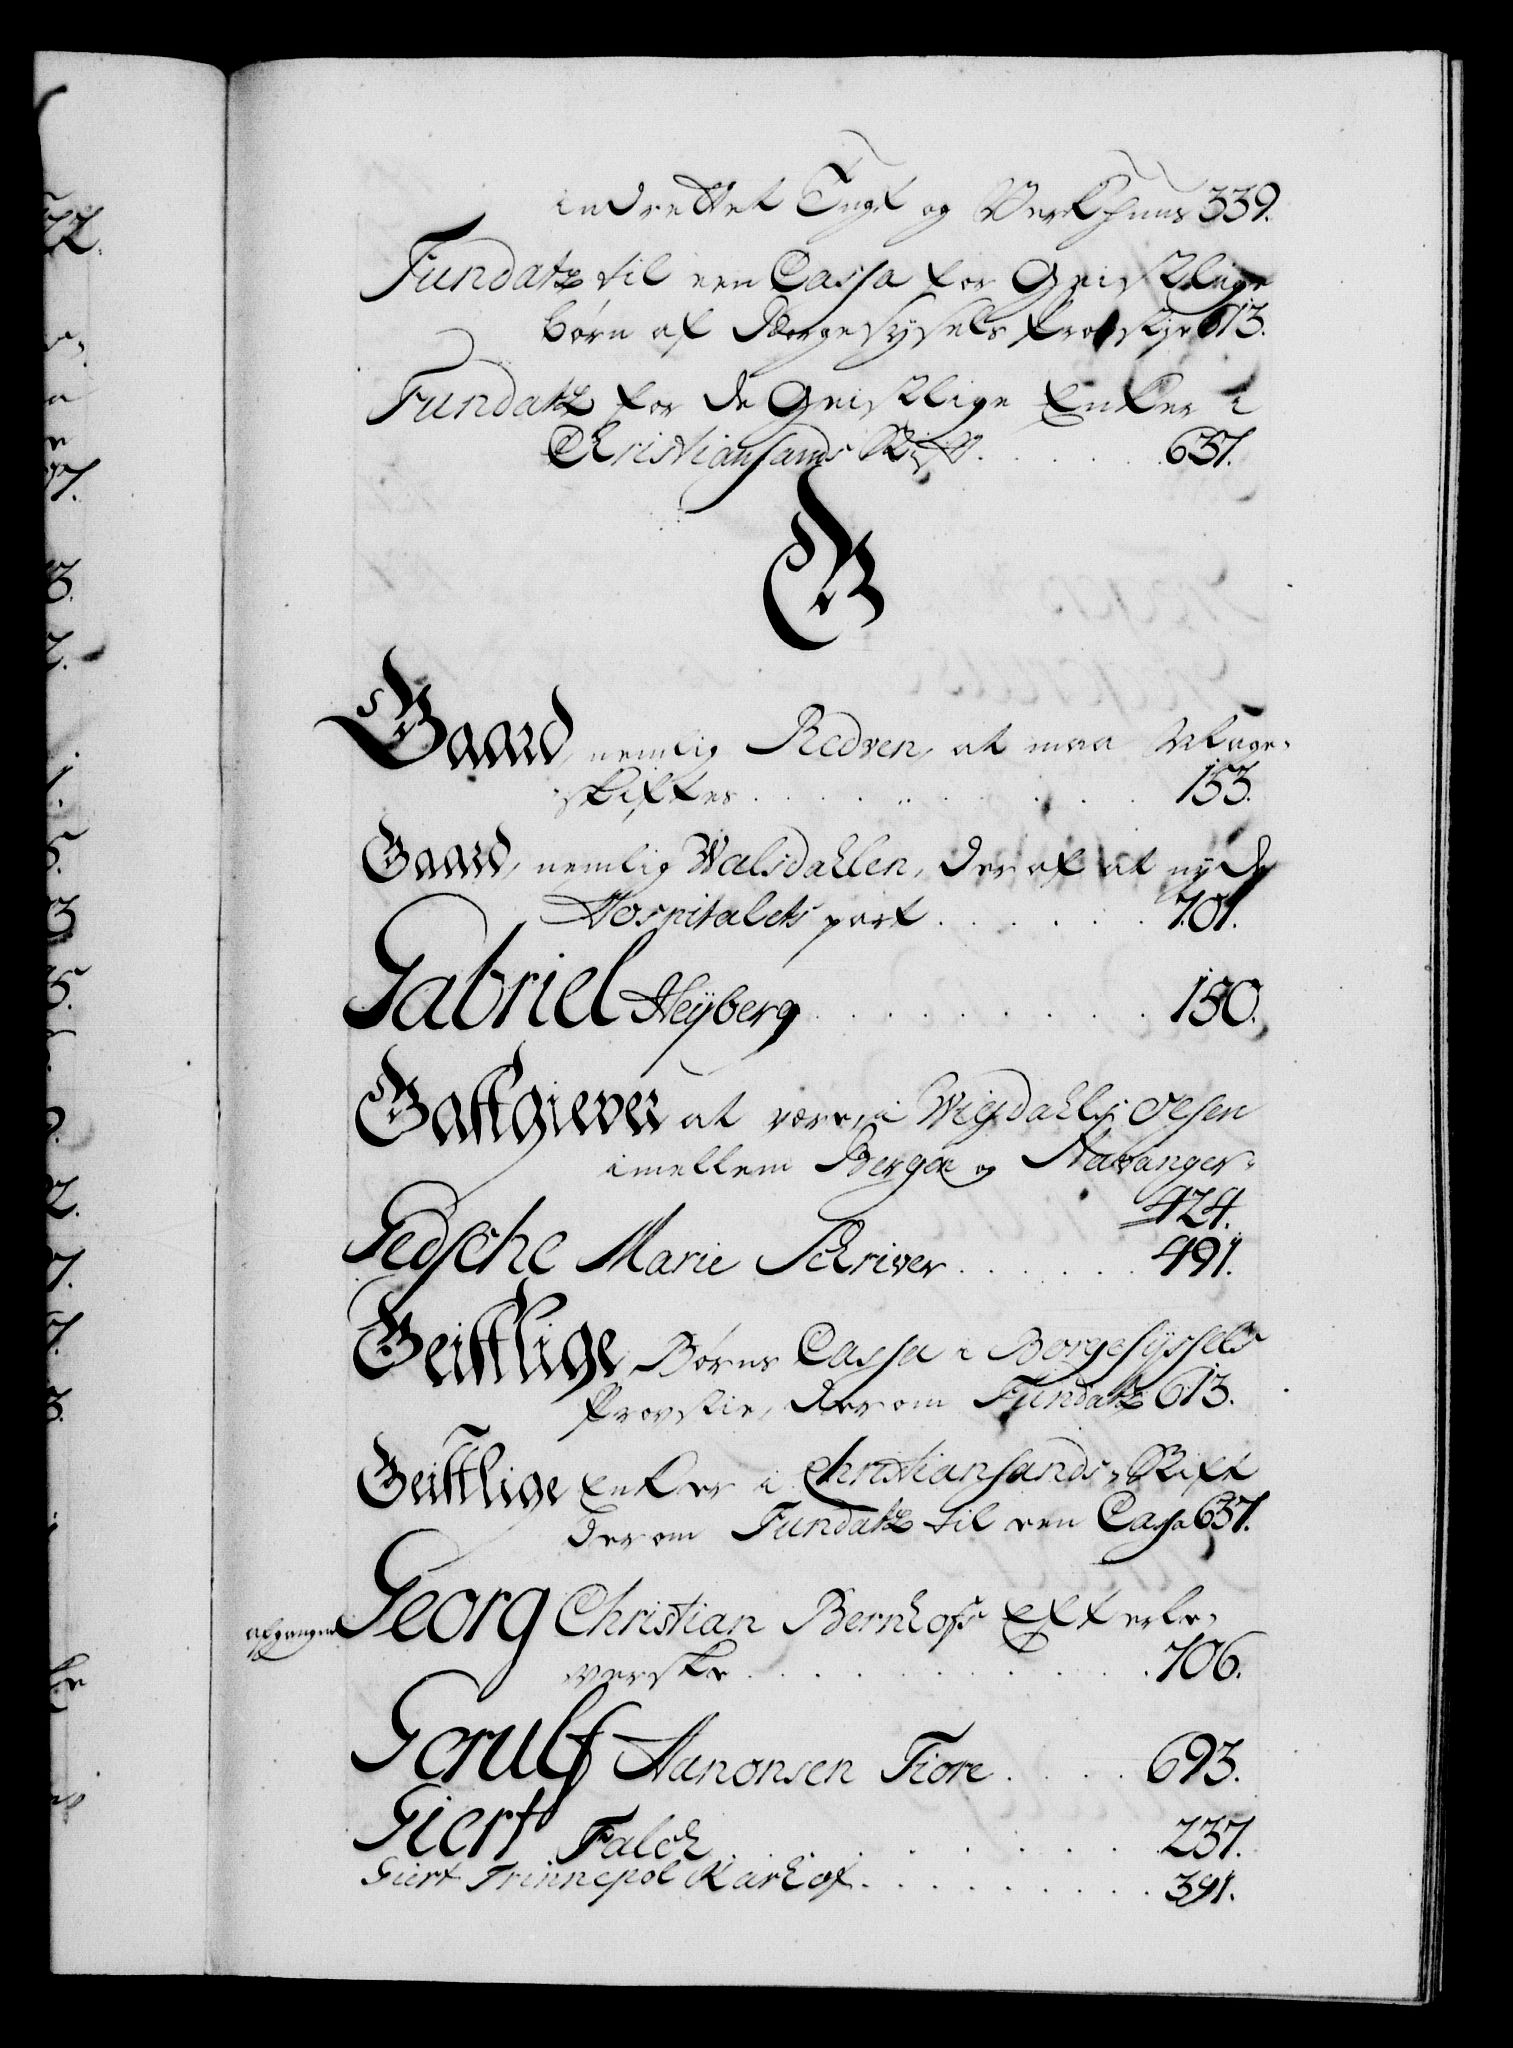 indrettet Tugt og Verkhuus 339.
Fundatz til een Cassa for Geistlige
børn af Borgesysels Provstie 613.
Fundatz for de Geistlige Enker i
Christiansands Stift . . . . . 637.
G
Gaard, nemlig Redven, at maa Mage-
skiftes . . . . . . . . 153.
Gaard, nemlig Walsdahlen, der af at nyde
Hospitalets part . . . . . . 701.
Gabriel Heyberg . . . . . . . . . 150.
Gastgiever at være i Wigdahls Oesen
imellem Bergen og Stavanger-
424.
Gedsche Marie Schriver . . . . . . 491.
Geistlige Børns Cassa i Borgesyssels
Provstie, derom Fundatz 613.
Geistlige Enker i Christiansands Stift
derom Fundatz til een Cassa 637.
afgangne Georg Christian Bernhofs Efterle-
verske . . . . . . . . . . . 706.
Gerulf Aanonsen Fiore . . . . 693.
Giert Falch . . . . . . . . . . 237.
Giert Trinnepol Karhof . . . . . . . . . 391.